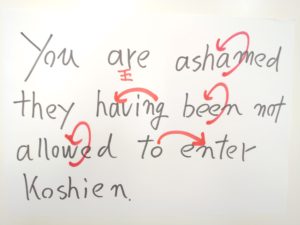 You are ashamed
王
they having been not
allowed to enter
Koshien.